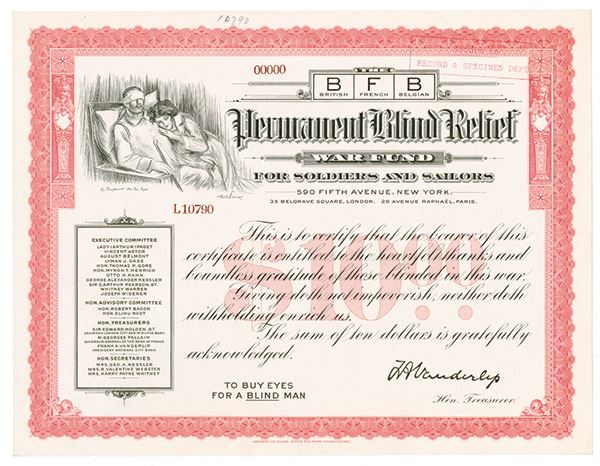 10790
RECORD & SPECIMEN DEPT
00000
THE
B F B
BRITISH FRENCH BELGIAN
Permanent Blind Relief
WAR FUND
FOR SOLDIERS AND SAILORS
590 FIFTH AVENUE, NEW YORK.
35 BELGRAVE SQUARE, LONDON. 26 AVENUE RAPHAËL, PARIS.
L10790
$10.00
This is to certify that the bearer of this
certificate is entitled to the heartfelt thanks and
boundless gratitude of those blinded in this war.
Giving doth not impoverish, neither doth
withholding enrich us.
The sum of ten dollars is gratefully
acknowledged.
EXECUTIVE COMMITTEE
LADY (ARTHUR) PAGET
VINCENT ASTOR
AUGUST BELMONT
LYMAN J. GAGE
HON. THOMAS P. GORE
HON. MYRON T. HERRICK
OTTO H. KAHN
GEORGE ALEXANDER KESSLER
SIR C. ARTHUR PEARSON, BT.
WHITNEY WARREN
JOSEPH WIDENER
HON. ADVISORY COMMITTEE
HON. ROBERT BACON
HON. ELIHU ROOT
HON. TREASURERS
SIR EDWARD HOLDEN, BT.
CHAIRMAN LONDON CITY AND MIDLAND BANK
M. GEORGES PALLAIN
GOVERNOR-GENERAL OF THE BANK OF FRANCE
FRANK A. VANDERLIP
PRESIDENT NATIONAL CITY BANK
HON. SECRETARIES
MRS. GEO. A. KESSLER
MRS. R. VALENTINE WEBSTER
MRS. HARRY PAYNE WHITNEY
TO BUY EYES
FOR A BLIND MAN
F A Vanderlip
Hon. Treasurer
AMERICAN BANK NOTE COMPANY